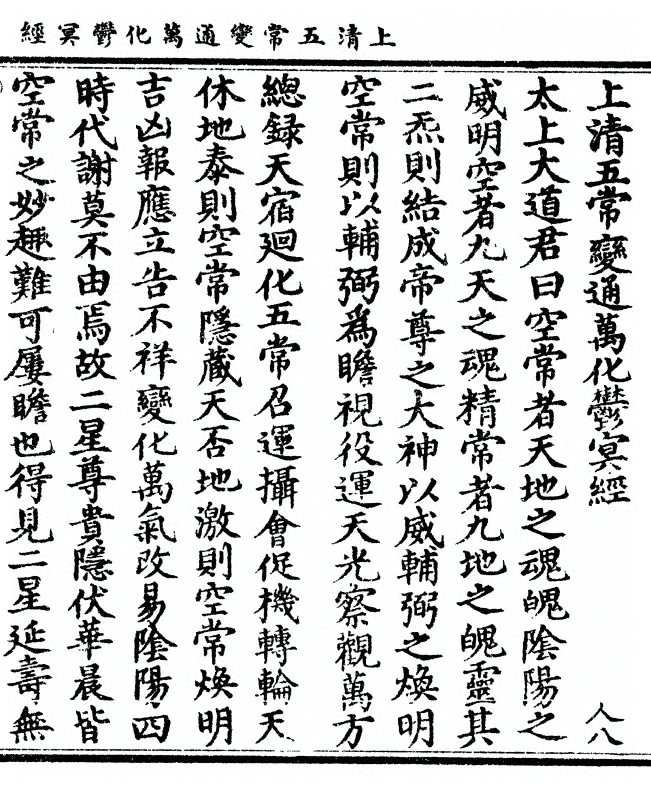 上清五常變通萬化鬱冥經
上清五常變通萬化鬱冥經 人八
太上大道君曰空常者天地之魂魄陰陽之
威明空者九天之魂精常者九地之魄靈其
二炁則結成帝尊之大神以威輔弼之煥明
空常則以輔弼為瞻視役運天光察觀萬方
總録天宿廻化五常召運攝會促機轉輪天
休地泰則空常隱藏天否地激則空常煥明
吉凶報應立告不祥變化萬氣改易陰陽四
時代謝莫不由焉故二星尊貴隱伏華晨皆
空常之妙趣難可屢瞻也得見二星延壽無